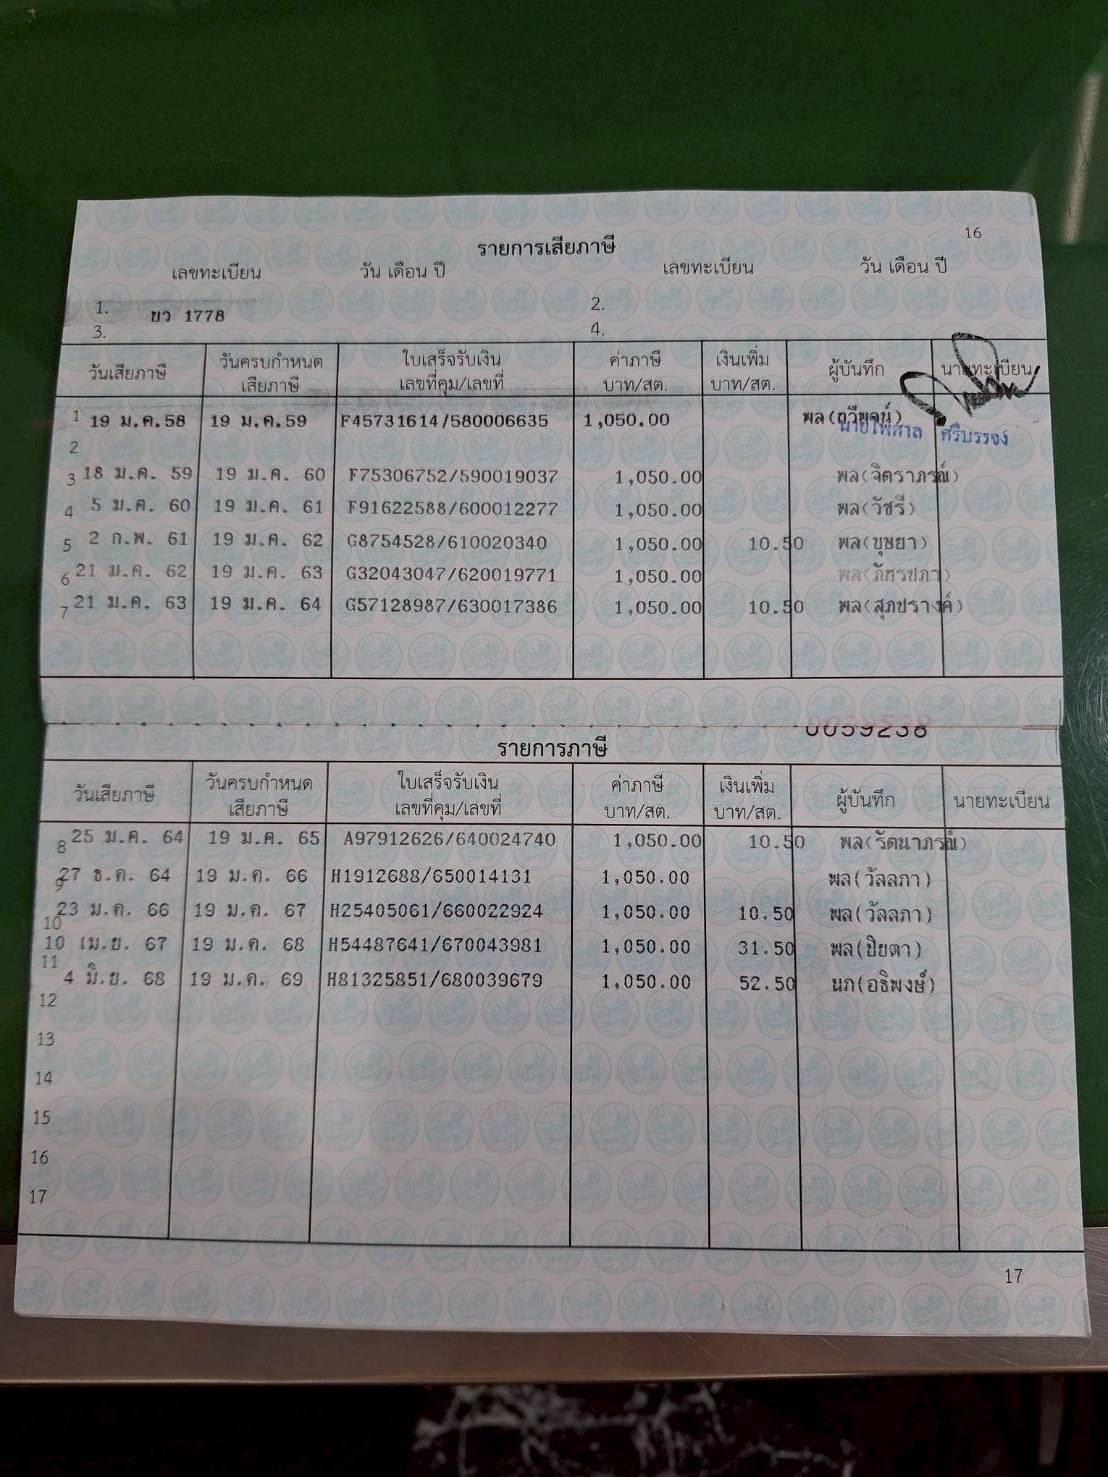 16
รายการเสียภาษี
เลขทะเบียน วัน เดือน ปี เลขทะเบียน วัน เดือน ปี
1. ขว 1778 2.
3. 4.
วันเสียภาษี วันครบกำหนด เสียภาษี ใบเสร็จรับเงิน เลขที่คุม/เลขที่ ค่าภาษี บาท/สต. เงินเพิ่ม บาท/สต. ผู้บันทึก นายทะเบียน
1 19 ม.ค.58 19 ม.ค.59 F45731614/580006635 1,050.00 พล(ถวิพจน์)
นายไพศาล ศรีบรรจง
2
3 18 ม.ค. 59 19 ม.ค. 60 F75306752/590019037 1,050.00 พล(จิตราภรณ์)
4 5 ม.ค. 60 19 ม.ค. 61 F91622588/600012277 1,050.00 พล(วัชรี)
5 2 ก.พ. 61 19 ม.ค. 62 G8754528/610020340 1,050.00 10.50 พล(บุษยา)
6 21 ม.ค. 62 19 ม.ค. 63 G32043047/620019771 1,050.00 พล(ภัทรปภา)
7 21 ม.ค. 63 19 ม.ค. 64 G57128987/630017386 1,050.00 10.50 พล(สุภปรางค์)
0059238
รายการภาษี
วันเสียภาษี วันครบกำหนด เสียภาษี ใบเสร็จรับเงิน เลขที่คุม/เลขที่ ค่าภาษี บาท/สต. เงินเพิ่ม บาท/สต. ผู้บันทึก นายทะเบียน
8 25 ม.ค. 64 19 ม.ค. 65 A97912626/640024740 1,050.00 10.50 พล(รัตนาภรณ์)
9 27 ธ.ค. 64 19 ม.ค. 66 H1912688/650014131 1,050.00 พล(วัลลภา)
10 23 ม.ค. 66 19 ม.ค. 67 H25405061/660022924 1,050.00 10.50 พล(วัลลภา)
11 10 เม.ย. 67 19 ม.ค. 68 H54487641/670043981 1,050.00 31.50 พล(ปิยตา)
12 4 มิ.ย. 68 19 ม.ค. 69 H81325851/680039679 1,050.00 52.50 นภ(อธิพงษ์)
13
14
15
16
17
17